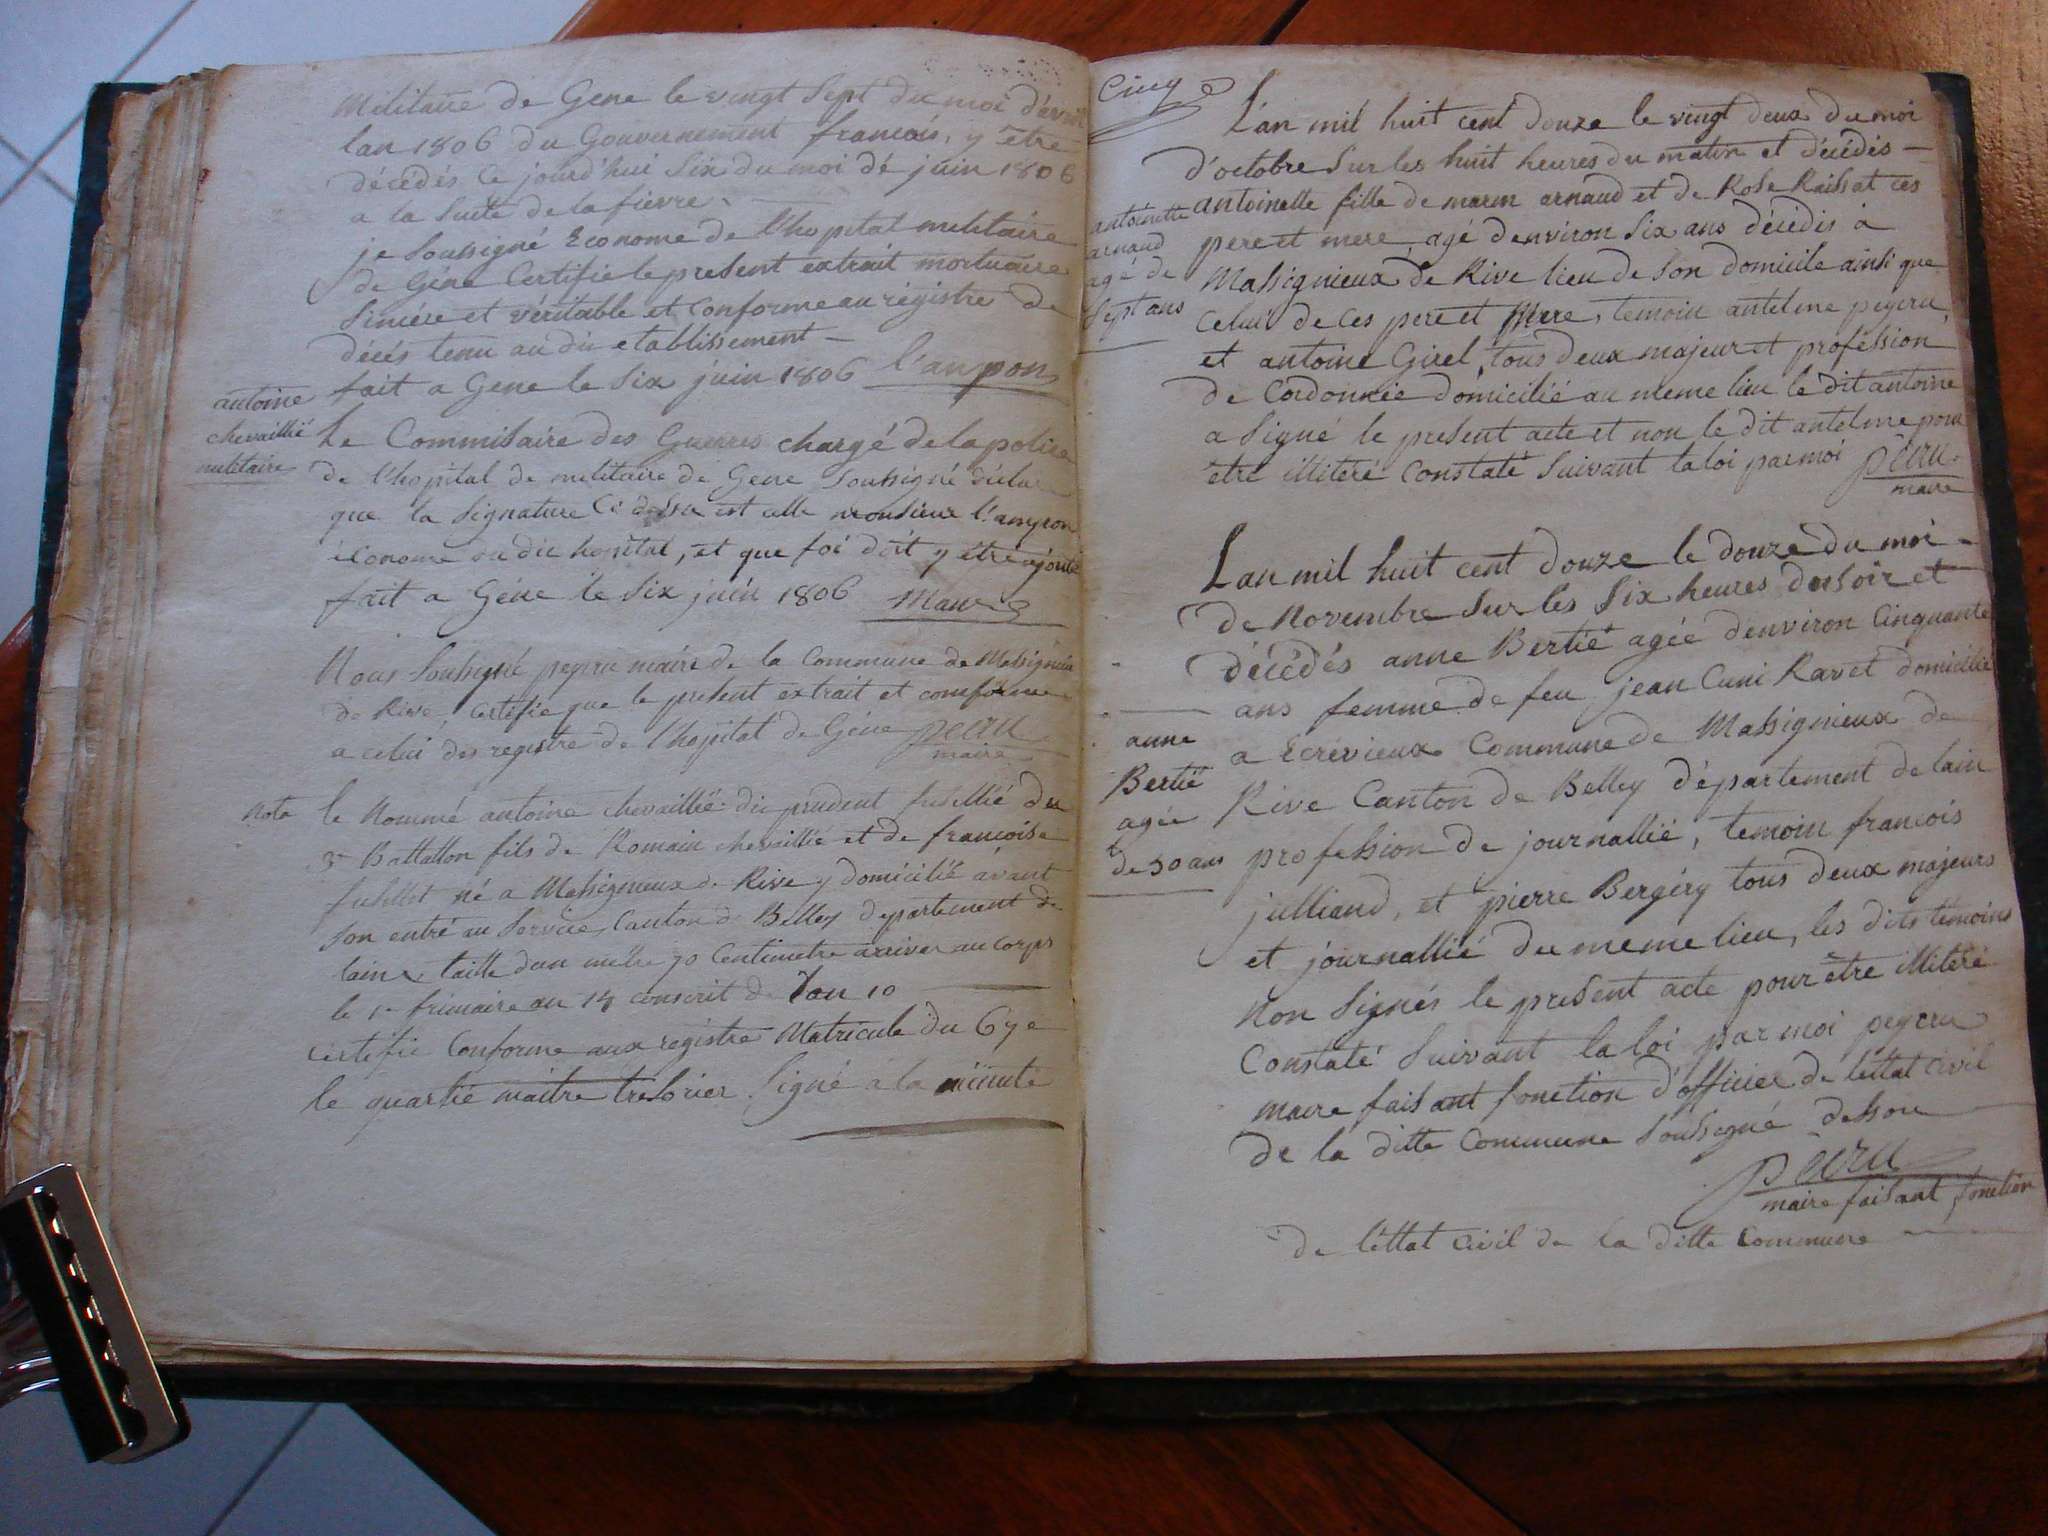 Militaire de Gene le vingt Sept du moi d'avril
lan 1806 du Gouvernement francois, y être
décédés ce jourd'hui Six du moi dé juin 1806
a la Suite de la fievre
je Soussigné Econome de l'hopital melitaire
de Géne Certifie le present extrait mortuaire
Sincére et véritable et conforme au régistre de
décés tenu au dit etablissement
fait a Gene le Six juin 1806 l'anpon
antoine
chevaillié
militaire
Le Commisaire des Guerres chargé de la police
de l'hopital de melitaire de Gene Soussigné déclare
que la Signature Ci dessu est celle monsieur l'anpon
économe du dit hopital, et que foi doit y étre ajouté
fait a Géne le Six juin 1806
Nous Soussigné peycru maire de la Commune de Massignieu
de Rive, certifie que le present extrait et comforme
a celui des registre de l'hopital de Géne pecru
maire
Nota le Nommé antoine chevaillié dit prudent fusellié du
3e Battallon fils de Romain chevaillié et de francoise
né a Massignieux de Rive y domicilié avant
Son entré au Service, Canton de Belley departement de
lain, taille dun mêtre 70 Centimetre arriver au Corps
le 1er frimaire an 14 conscrit de l'an 10
certifie Conforme aux registre Matricule du 67e
le quartié maitre tresorier. Signé a la minute
Cinq
Lan mil huit cent douze le vingt deux du moi
d'octobre Sur les huit heures du matin et décédés
antoinette fille de marin arnaud et de Rose Raissat ces
pere et mere, agé denviron Six ans décédés à
Massignieux de Rive lieu de Son domicile ainsi que
Celui de Ces pere et Mere, temoin antelme peycru
et antoine Girel, tous deux majeur et profession
de Cordonnié domicilié au meme lieu le dit antoine
a Signé le present acte et non le dit antelme pour
être illiteré Constaté Suivant la loi par moi pecru
maire
antoinette
arnaud
agé de
Sept ans
Lan mil huit cent douze le douze du moi
de Novembre Sur les Six heures du Soir et
décédés anne Bertié agée denviron Cinquante
ans femme de feu jean Cuni Ravet domicilié
a Ecrevieux Commune de Massignieux de
Rive Canton de Belley département de lain
profession de journallié, temoin francois
julliand, et pierre Bergéry tous deux majeurs
et journallié du meme lieu, les dits témoins
Non Signés le present acte pour être illiteré
Constaté Suivant la loi par moi peycru
maire faisant fonction d'officier de léttat Civil
de la ditte Commune Soussegné dessou
pecru
maire faisant fonction
de léttat Civil de la ditte Commune
anne
Bertié
agée
de 50 ans